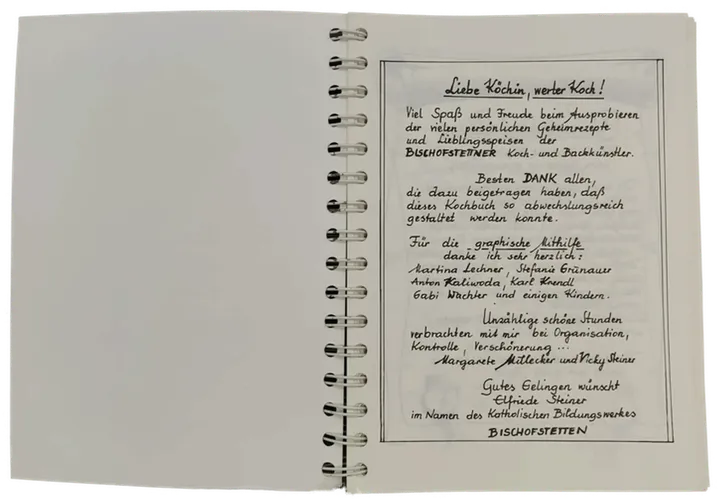 Liebe Köchin, werter Koch!
Viel Spaß und Freude beim Ausprobieren
der vielen persönlichen Geheimrezepte
und Lieblingsspeisen der
BISCHOFSTETTNER Koch- und Backkünstler.
Besten DANK allen,
die dazu beigetragen haben, daß
dieses Kochbuch so abwechslungsreich
gestaltet werden konnte.
Für die graphische Mithilfe
danke ich sehr herzlich:
Martina Lechner, Stefanie Grünauer
Anton Kaliwoda, Karl Krendl
Gabi Wachter und einigen Kindern.
Unzählige schöne Stunden
verbrachten mit mir bei Organisation,
Kontrolle, Verschönerung ...
Margarete Mitlecker und Vicky Steiner
Gutes Gelingen wünscht
Elfriede Steiner
im Namen des Katholischen Bildungswerkes
BISCHOFSTETTEN